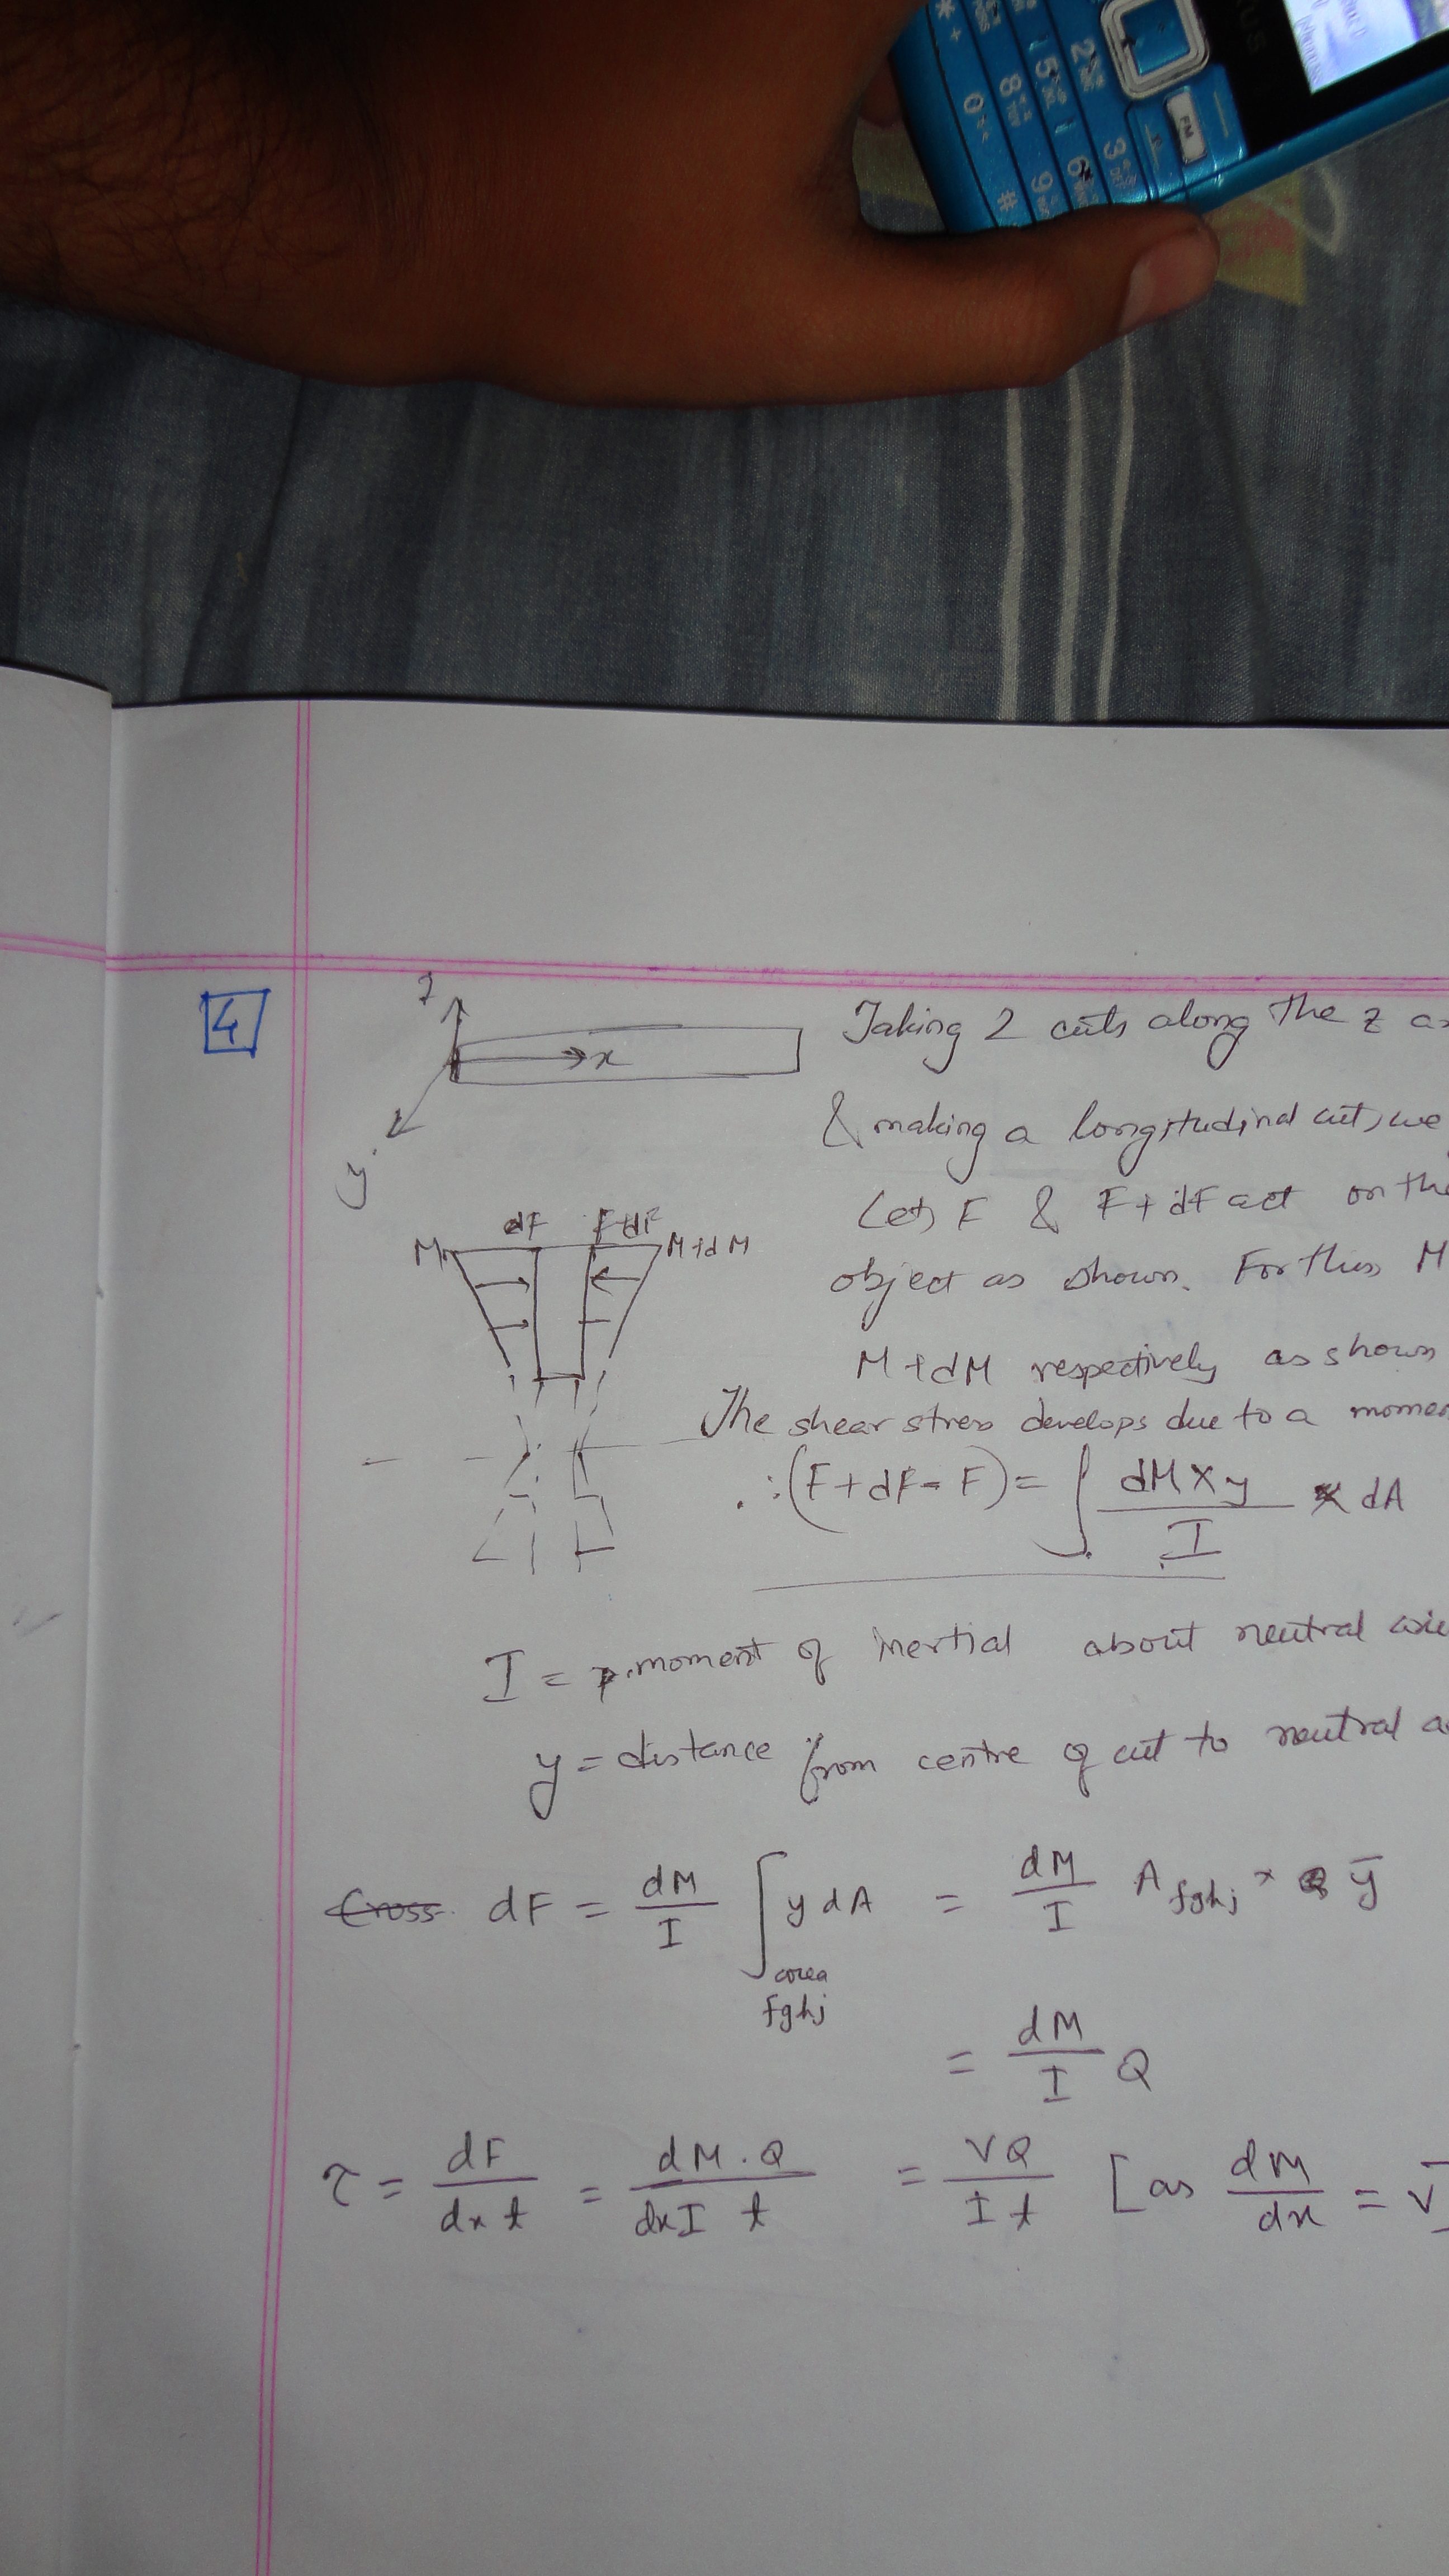 FM
2
5
8
0
3
6
9
#
*
+
4
z
x
y
Taking 2 cuts along the z
& making a longitudinal cut, we
Let F & F + dF act on the
object as shown. For this M
M + dM respectively as shown
dF F+dF
M M+dM
The shear stress develops due to a
∴ (F + dF - F) = ∫ dM × y / I × dA
I = moment of inertial about neutral
y = distance from centre of cut to neutral
Cross dF = dM / I ∫ y dA = dM / I A fghj × ȳ
area
fghj
= dM / I Q
τ = dF / dx t = dM . Q / dx I t = VQ / I t [as dM / dx = V]